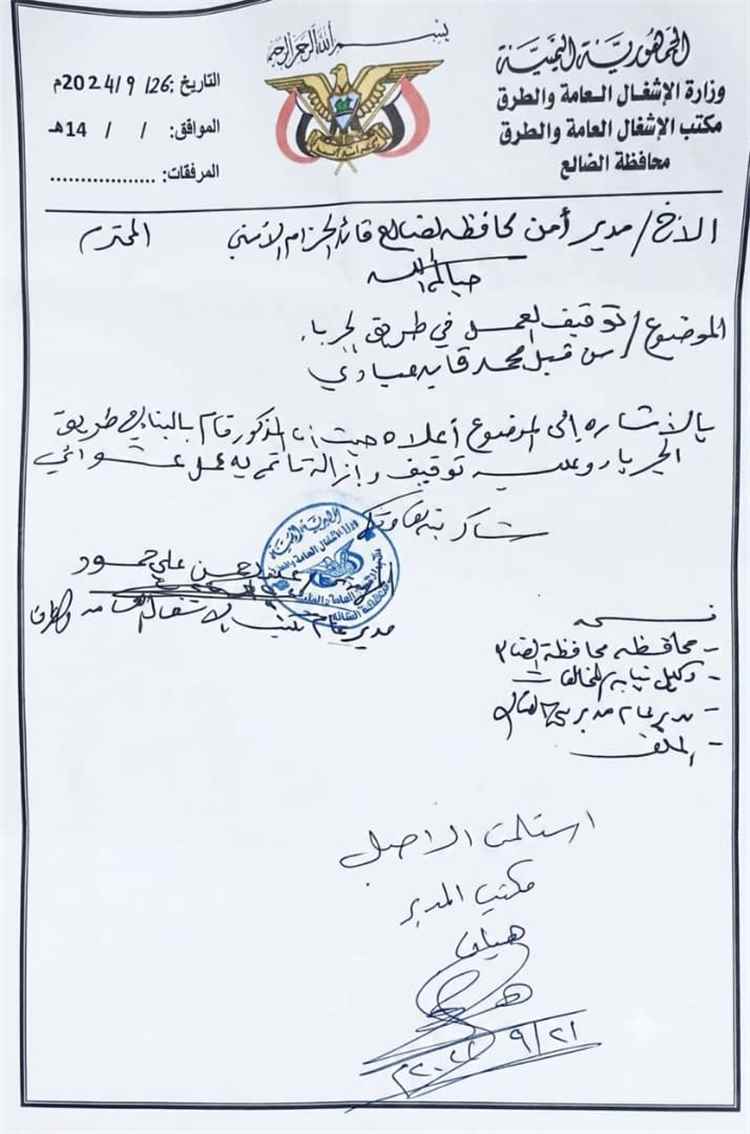 بسم الله الرحمن الرحيم
الجمهورية اليمنية
وزارة الإشغال العامة والطرق
مكتب الإشغال العامة والطرق
محافظة الضالع
التاريخ: 26/ 9 /2024م
الموافق: / / 14هـ
المرفقات: ..................
الأخ/ مدير أمن محافظه لضالع قائد الحزام الأمني المحترم
حياكم الله
الموضوع/ توقيف لعمل في طريق لجرباء
من قبل محمد قايد صيادي
بالاشاره إلى الموضوع أعلاه حيث ان المذكور قام بالبناء في طريق
الجرباء وعليه توقيف وإزالة ما تم به عمل عشوائي
شاكرين تعاونكم
علي حمود
مدير عام مكتب الاشغال العامه والطرق
نسخه
- محافظه محافظة الضالع
- وكيل نيابه المخالفات
- مدير عام مديريه الضالع
- الملف
استلمت الاصل
مكتب المدير
٢١/ ٩